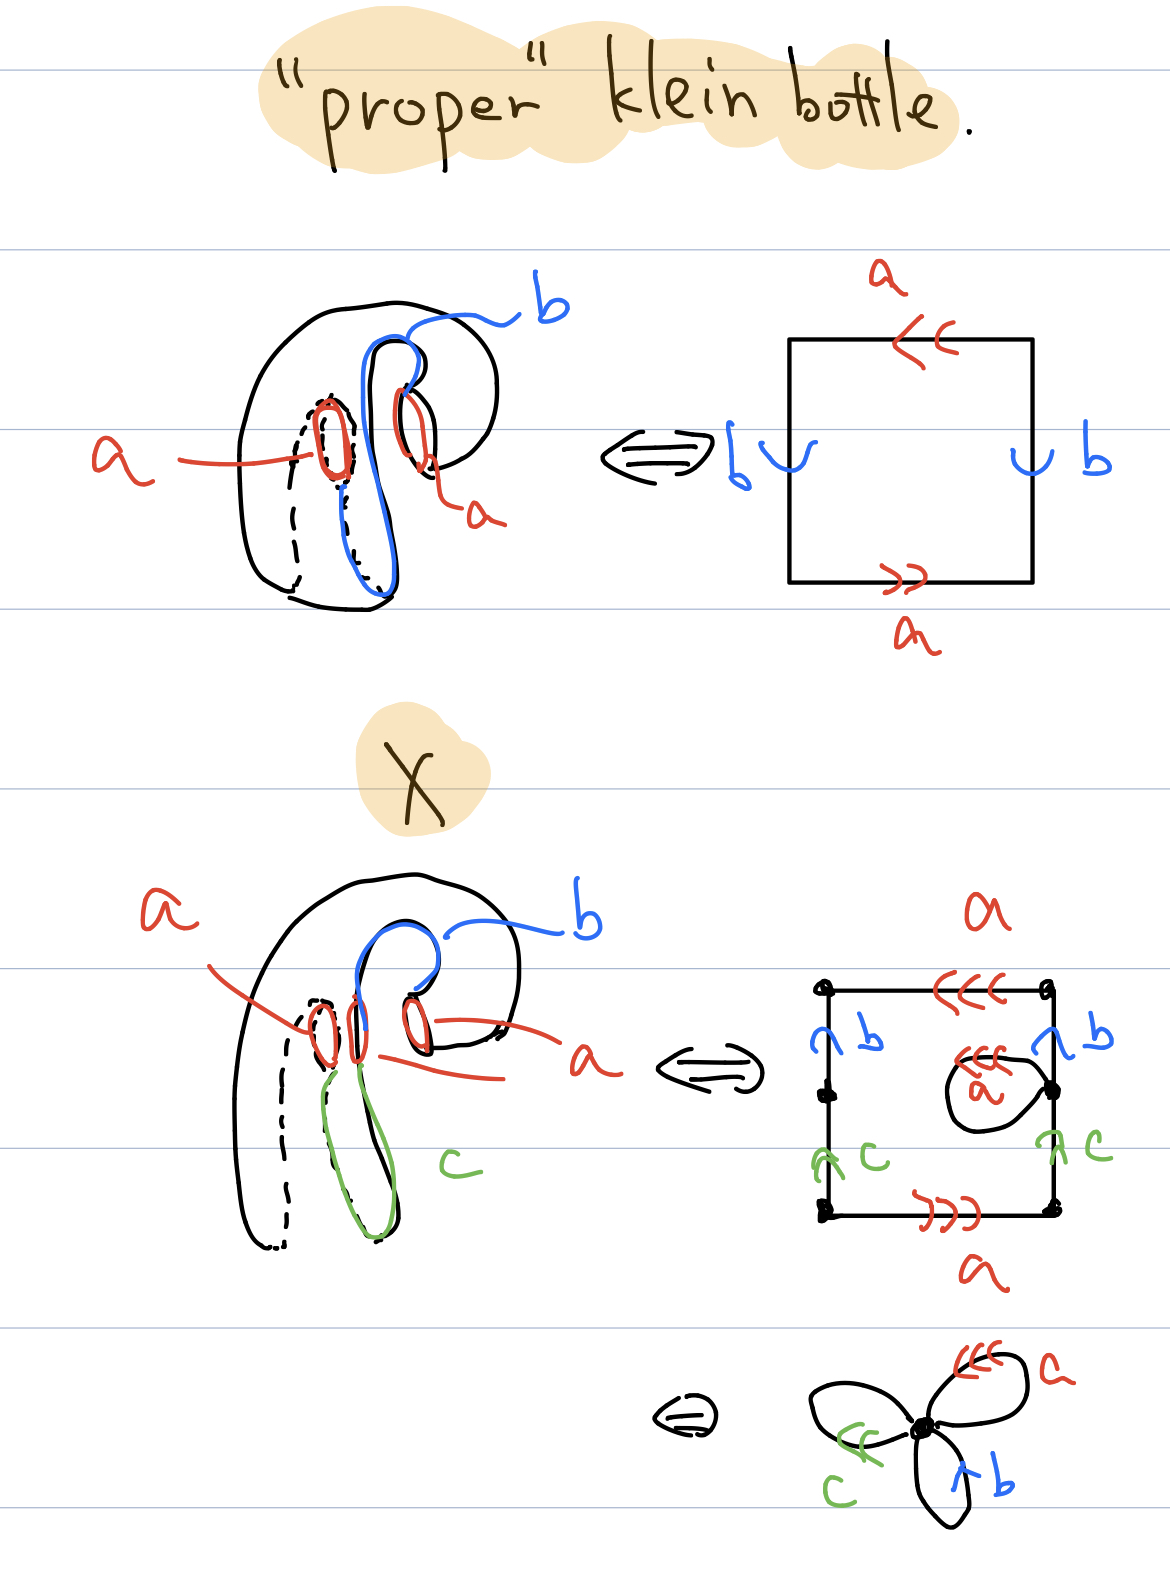 "proper" klein bottle.
b
a
a
a
b
b
a
X
a
b
a
c
a
b
b
a
c
c
a
a
b
c